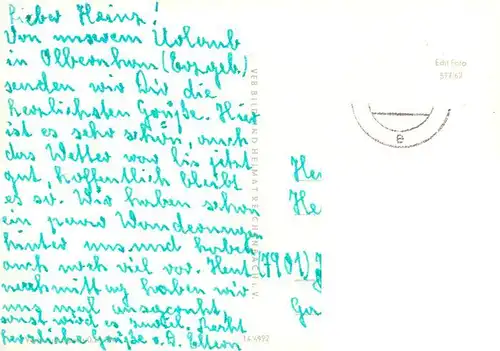 Lieber Heinz!
Von unserem Urlaub
in Olbernhau (Erzgeb.)
senden wir Dir die
herzlichsten Grüße. Hier
ist es sehr schön, auch
das Wetter war bis jetzt
gut, hoffentlich bleibt
es so. Wir haben schon
ein paar Wanderungen
hinter uns und haben
auch noch viel vor. Heut
nachmittag haben wir
uns mal ausgeruht,
sonst wird es zuviel. Recht
herzliche Grüße v. D. Eltern
VEB BILD UND HEIMAT REICHENBACH i. V.
Echt Foto
He
He
(7901) J
Ge
e